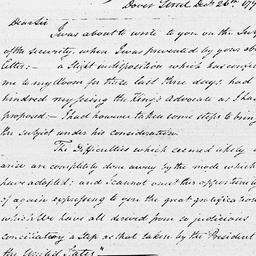 Dover Street Decr. 26th 179
Dear Sir
I was about to write to you on the Sub
of the security, when I was prevented by yours abo
letter:— a slight indisposition which has confin
me to my Room for these last three days, had
hindred my seeing the King's advocate as I had
proposed:— I have however taken some steps to bring
the subject under his consideration.
The Difficulties which seemed likely
arise are completely done away by the mode which
have adopted: and I cannot omit this opportunity
of again expressing to you the great gratification
which We have all derived from so judicious
conciliatory a step as that taken by the President
the United States."